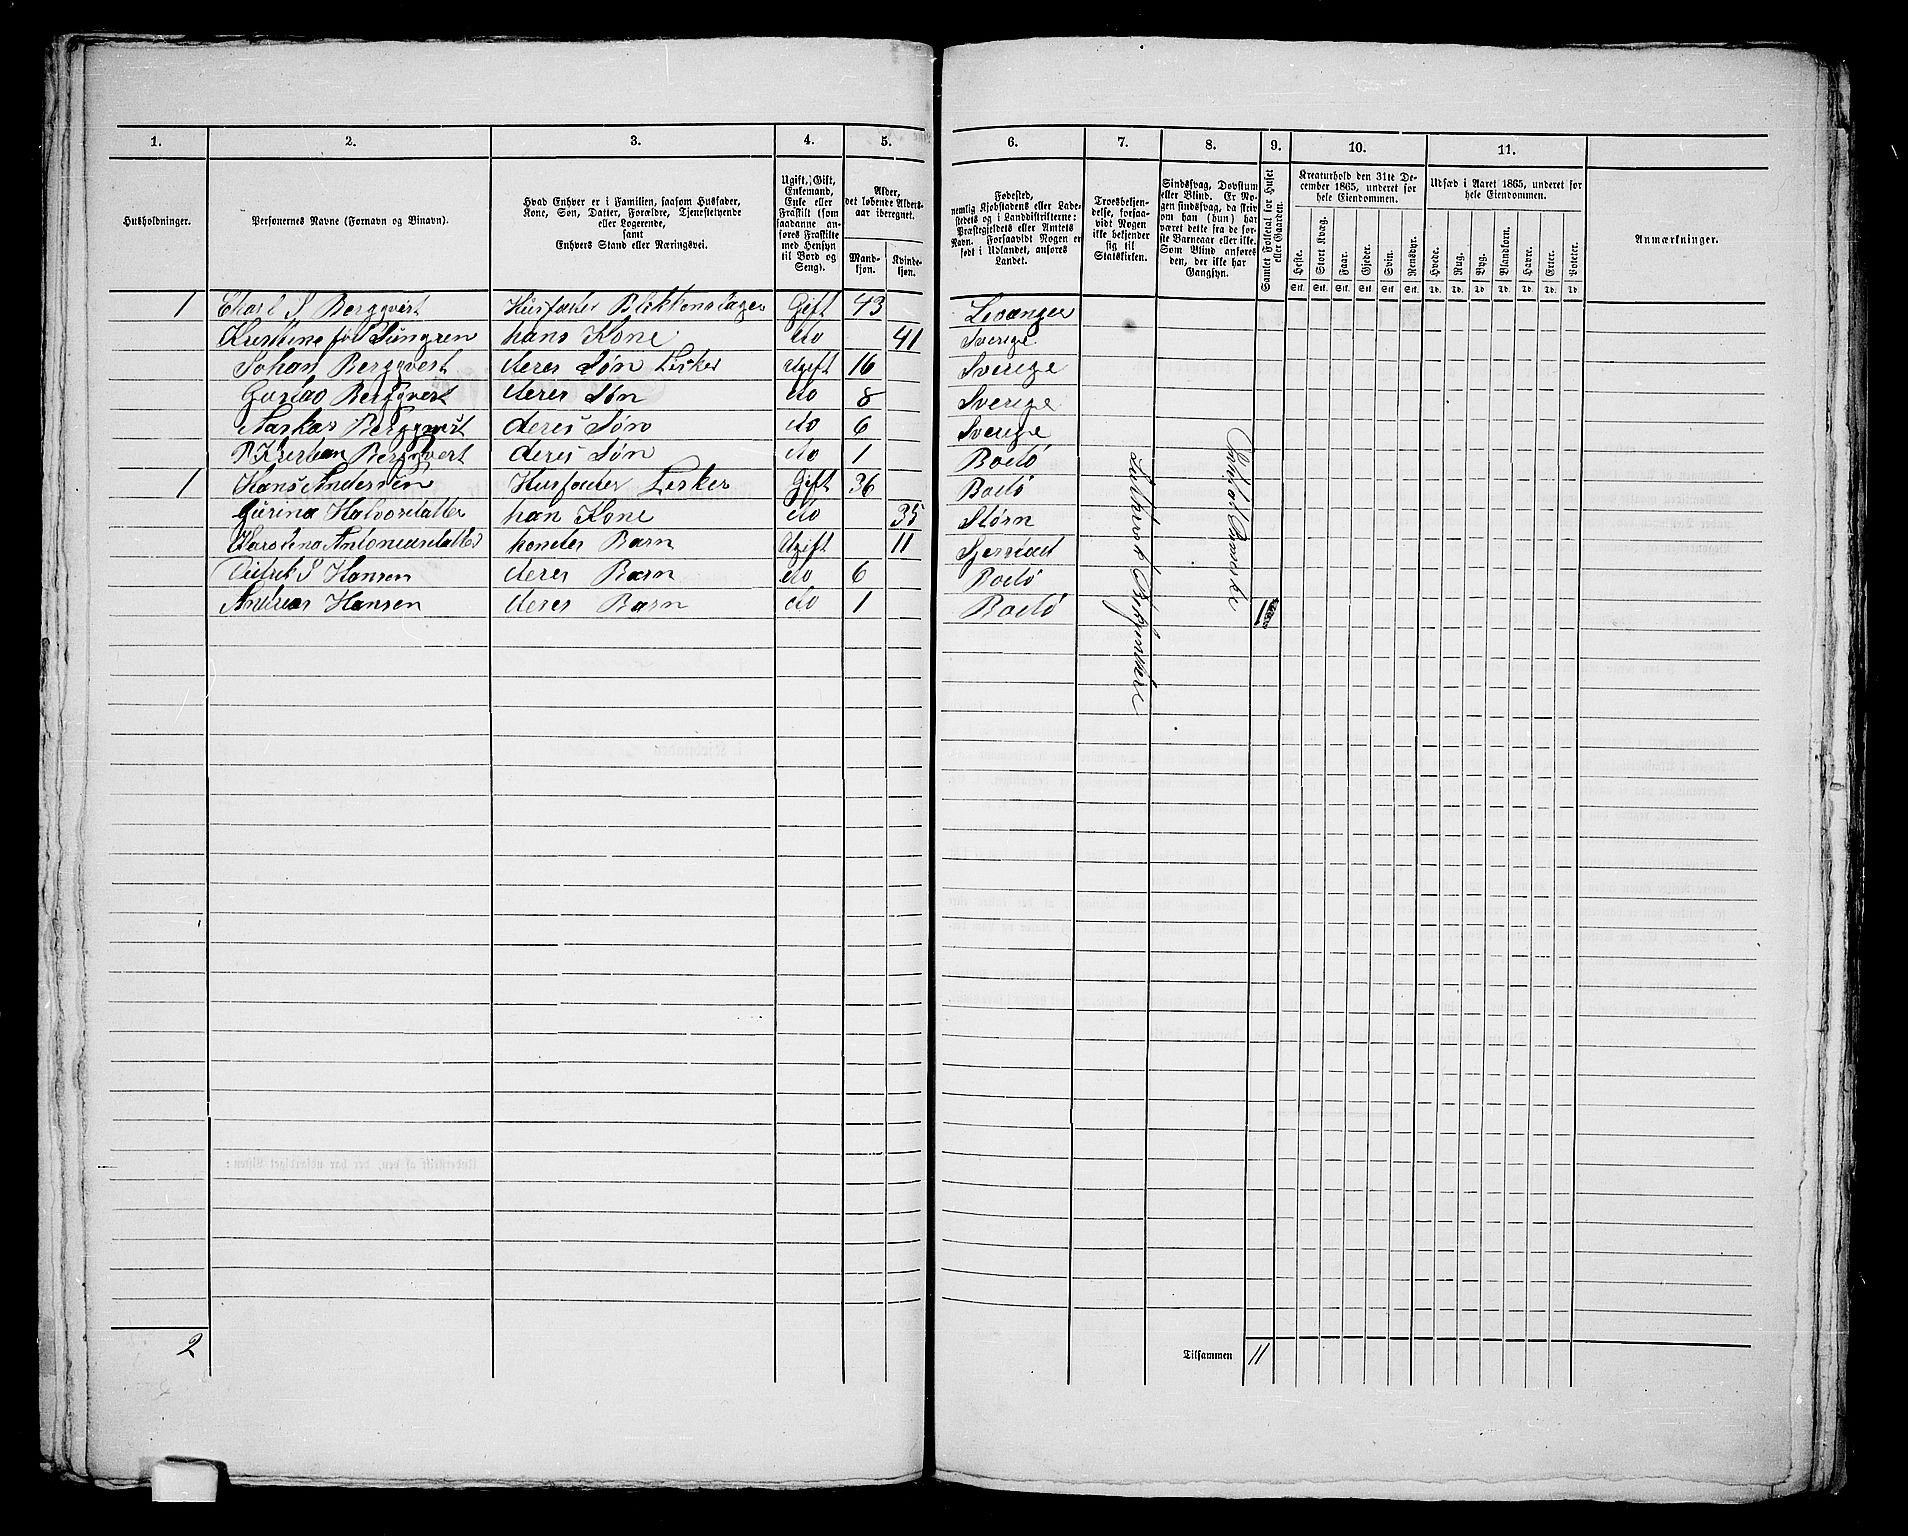 1. 2. 3. 4. 5. 6. 7. 8. 9. 10. 11.
Husholdninger.
Personernes Navne (Fornavn og Binavn).
Hvad Enhver er i Familien, saasom Husfader, Kone, Søn, Datter, Forældre, Tjenestetyende eller Logerende, samt Enhvers Stand eller Næringsvei.
Ugift, Gift, Enkemand, Enke eller Fraskilt (som saadanne anføres Fraskilte med Hensyn til Bord og Seng).
Alder, det løbende Aldersaar iberegnet.
Mandkjøn. Kvindekjøn.
Fødested, nemlig Kjøbstadens eller Ladestedets og i Landdistrikterne: Præstegjeldets eller Amtets Navn. Forsaavidt Nogen er født i Udlandet, anføres Landet.
Troesbekjendelse, forsaavidt Nogen ikke bekjender sig til Statskirken.
Sindssvag, Døvstum eller Blind. Er Nogen sindssvag, da skrives om han (hun) har været dette fra de første Barneaar eller ikke. Som Blind ansøres den, der ikke har Gangsyn.
Samlet Folketal for Huset eller Gaarden.
Kreaturhold den 31te December 1865, underet før hele Eiendommen.
Heste. Stort Kvæg. Faar. Gjeder. Svin. Rensdyr.
Stk. Stk. Stk. Stk. Stk. Stk.
Udsæd i Aaret 1865, underet før hele Eiendommen.
Hvede. Rug. Byg. Blandkorn. Havre. Erter. Poteter.
Td. Td. Td. Td. Td. Td. Td.
Anmærkninger.
1 Karl S Bergqvist Husfader Blikkenslager Gift 43 Levanger
Kristine fød Sungren hans Kone do 41 Sverige
Johan Bergqvest deres Søn Lisker Ugift 16 Sverige
Gustav Bergqvest deres Søn do 8 Sverige
Bergqvest deres Søn do 6 Sverige
P Kristian Bergqvest deres Søn do 1 Bodø
1 Hans Andersen Husfader Lisker Gift 36 Bodø
Gurina Halvorsdatter han Kone do 35 Størn
Karolina Antoniusdatter hendes Barn Ugift 11 Gjerstad
Didrik S Hansen deres Barn do 6 Bodø
Andreas Hansen deres Barn do 1 Bodø 11
2
Tilsammen 11